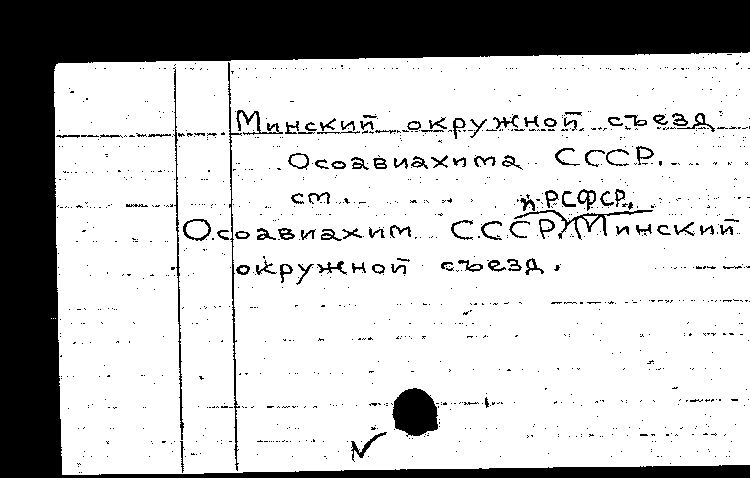 Минский окружной съезд
Осоавиахима СССР.
ст.
и РСФСР.
Осоавиахим СССР. Минский
окружной съезд.